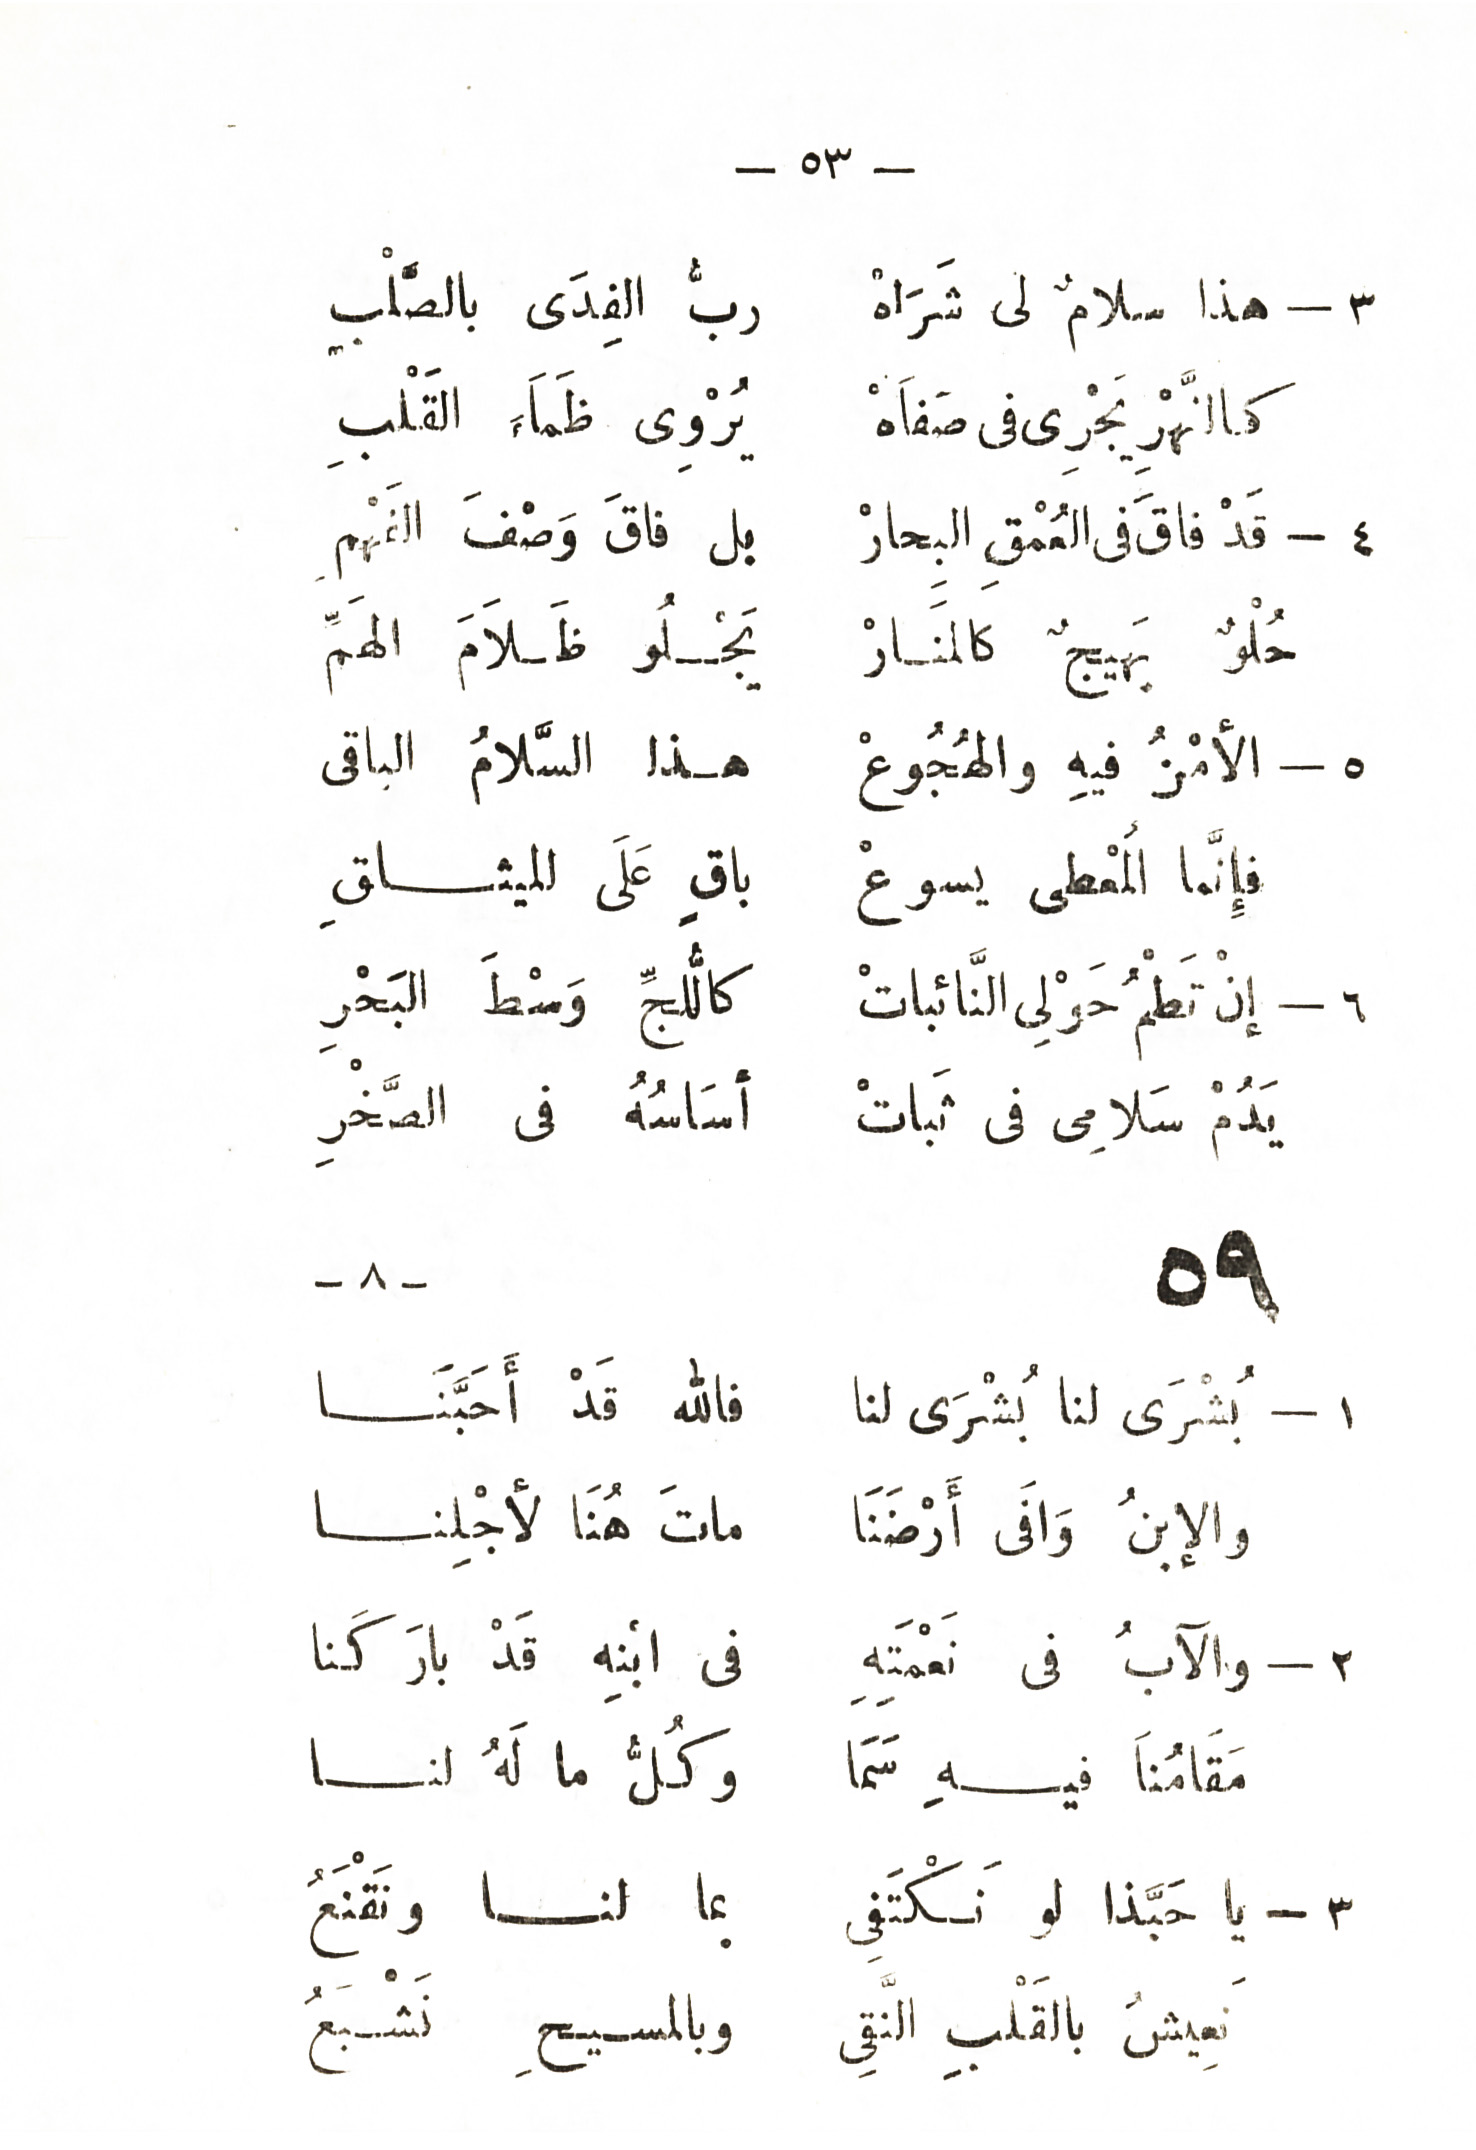 — ٥٣ —
٣ — هذا سلامٌ لى شَرَاهْ ربُّ الفِدَى بالصَّلْبِ
كالنَّهْرِ يَجْرِى فى صَفاَهْ يُرْوِى ظَمَاَءَ القَلْبِ
٤ — قَدْ فاقَ فى العُمْقِ البِحارْ بل فاقَ وَصْفَ الفَهْمِ
حُلْوٌ بَهيجٌ كالمَنَارْ يَجْلُو ظَلاَمَ الهَمِّ
٥ — الأمْنُ فيهِ والهُجُوعْ هذا السَّلامُ الباقى
فإِنَّما المُعْطى يسوعْ باقٍ عَلَى الميثاقِ
٦ — إنْ تَطْمُ حَوْلِى النَّائباتْ كاللُّجِّ وَسْطَ البَحْرِ
يَدُمْ سَلامِى فى ثَباتْ أسَاسُهُ فى الصَّخْرِ
٥٩ — ٨ —
١ — بُشْرَى لنا بُشْرَى لنا فالله قَدْ أَحَبَّنَا
والإبنُ وَافَى أَرْضَنَا ماتَ هُنَا لأجْلِنا
٢ — والآبُ فى نَعْمَتَهِ فى ابْنهِ قَدْ بارَكَنا
مَقَامُناَ فيهِ سَمَا وكُلُّ ما لَهُ لنا
٣ — يا حَبَّذا لو نَكْتَفِى بما لنا ونَقْنَعُ
نَعِيشُ بالقَلْبِ النَّقِى وبالمسيحِ نَشْبَعُ